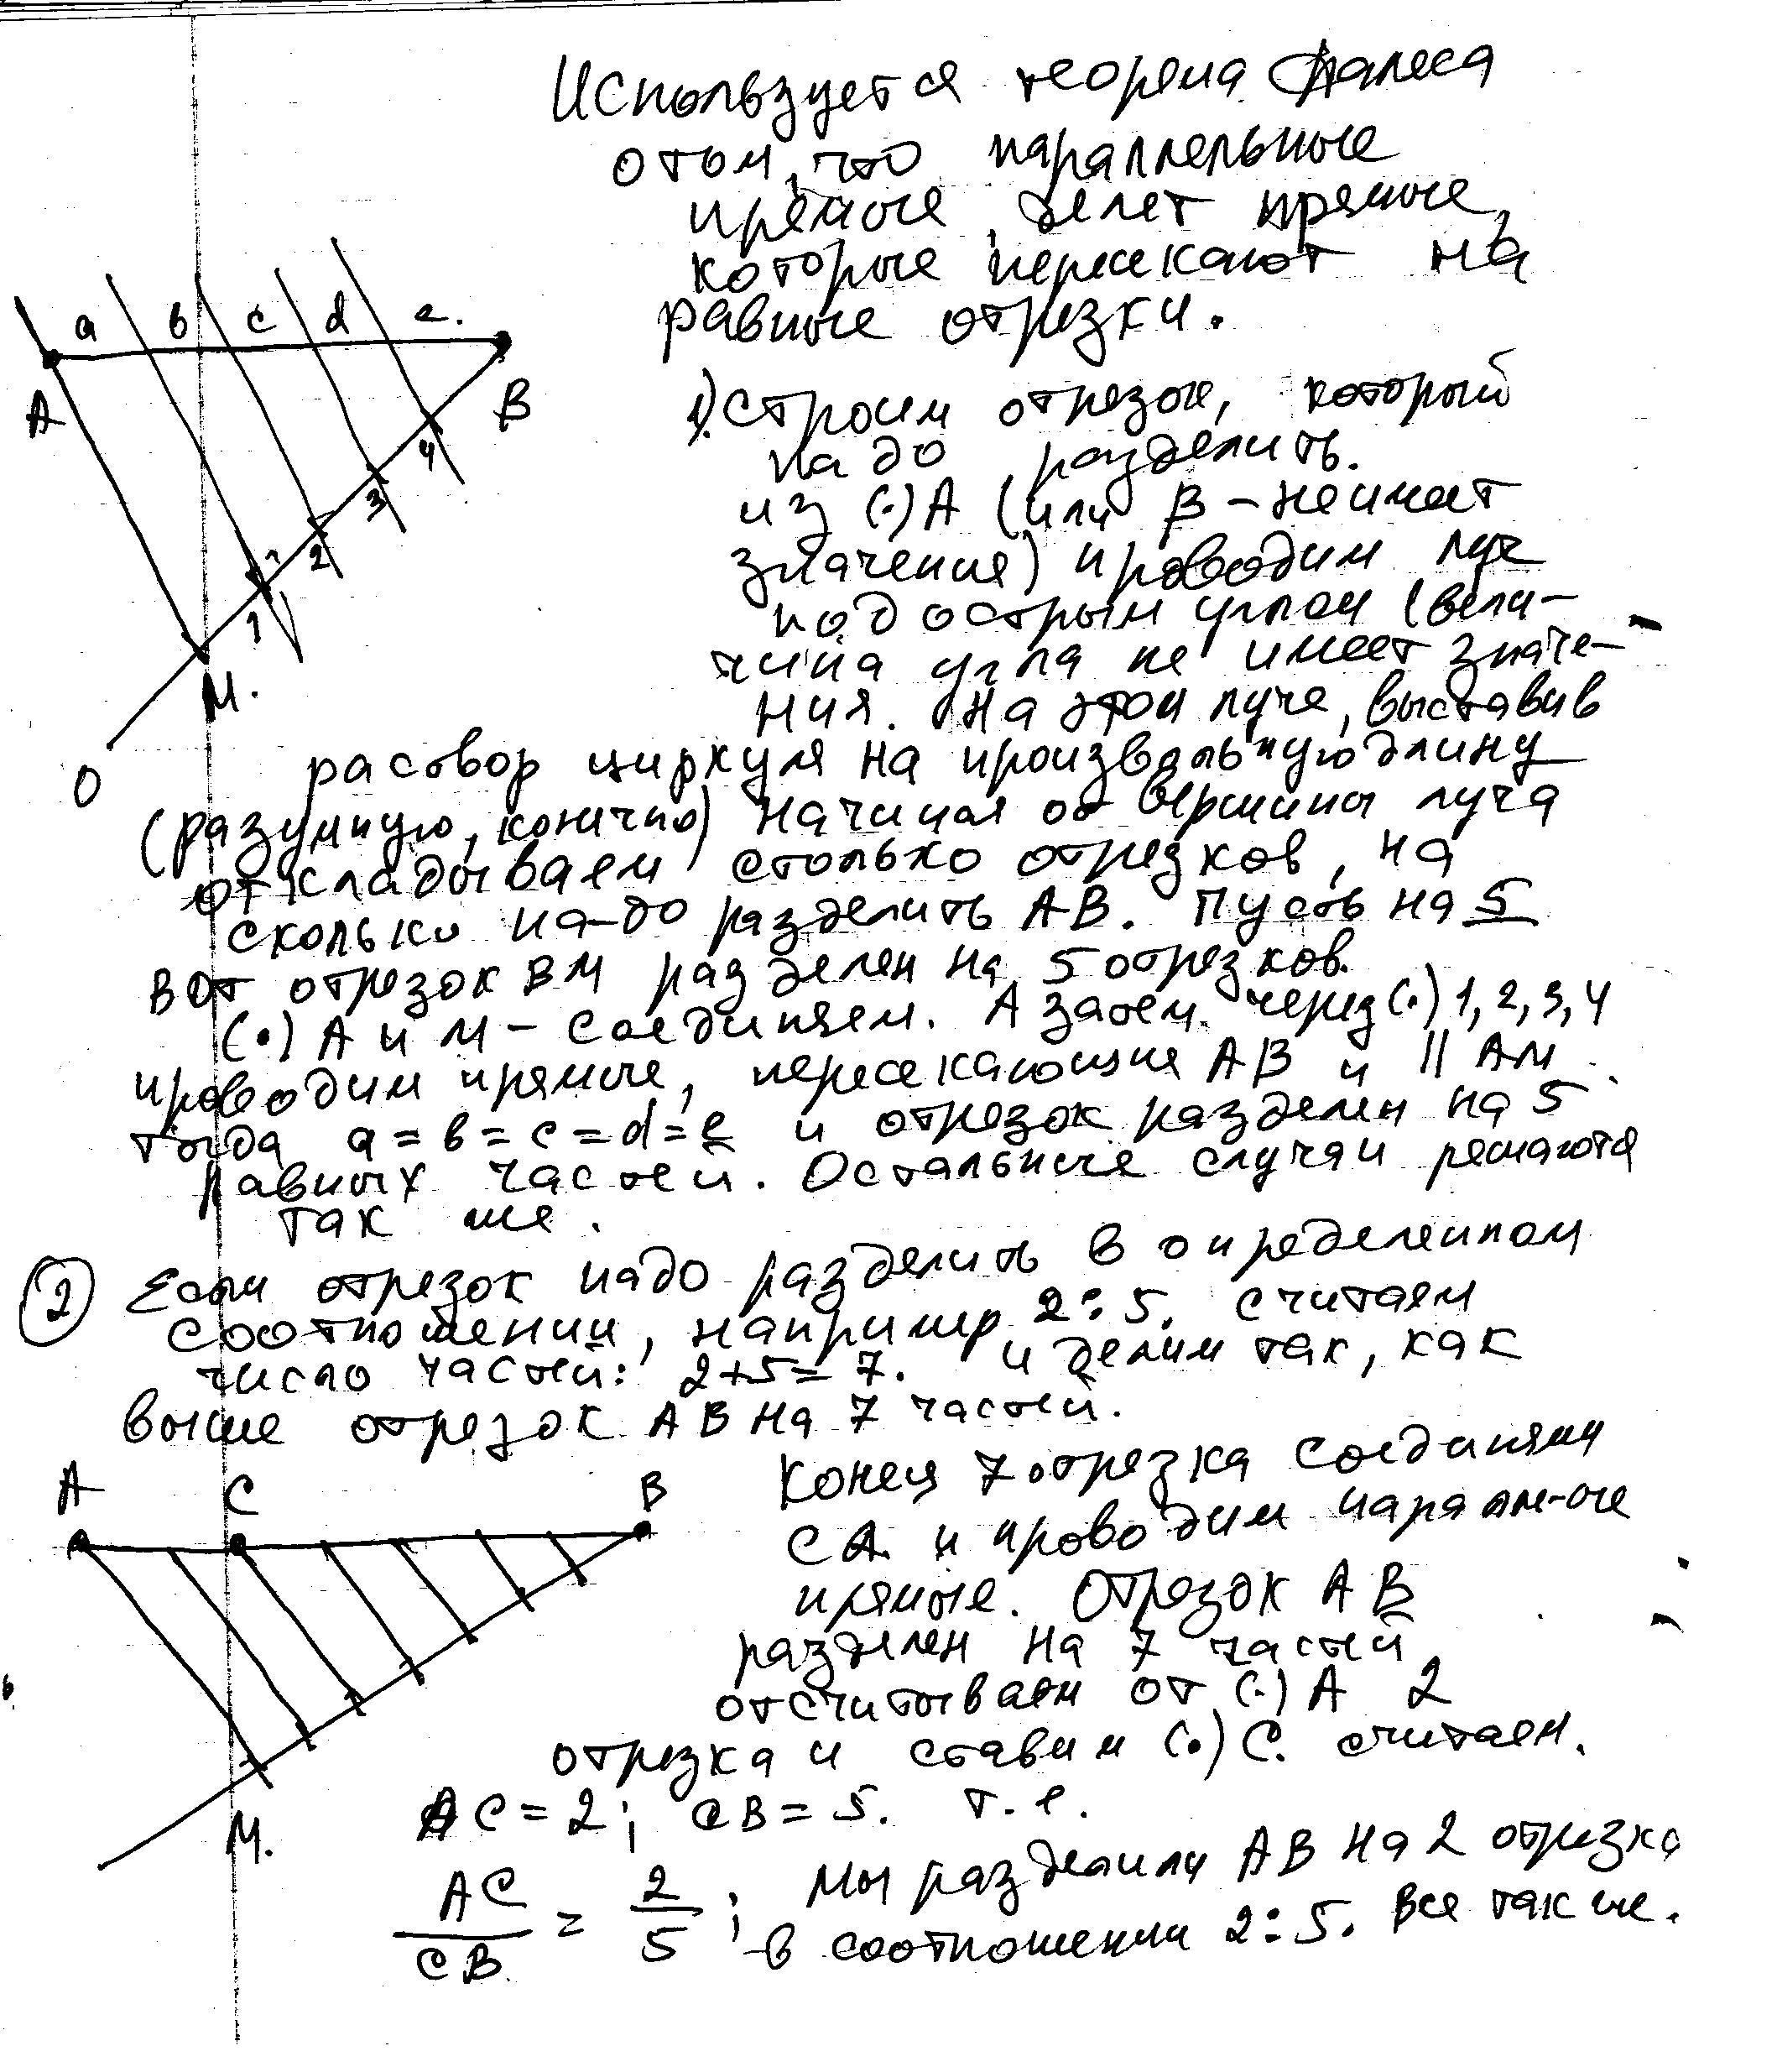 Используется теорема Фалеса
о том, что параллельные
прямые делет прямые,
которые пересекают на
равные отрезки.
a b c d e.
A B
1) Строим отрезок, который
надо разделить.
из (·) A (или B - не имеет
значения) проводим луч
под острым углом (вели-
чина угла не имеет значе-
ния. На этом луче, выставив
4
3
2
1
M.
O
раствор циркуля на произвольную длину
(разумную, конечно) начиная от вершины луча
откладываем столько отрезков, на
сколько надо разделить AB. Пусть на 5
Вот отрезок BM разделен на 5 отрезков.
(·) A и M - соединяем. А затем через (·) 1, 2, 3, 4
проводим прямые, пересекающие AB и || AM.
тогда a = b = c = d = e и отрезок разделен на 5
равных частей. Остальные случаи решаются
так же.
2 Если отрезок надо разделить в определенном
соотношении, например 2:5. считаем
число частей: 2+5=7. и делим так, как
выше отрезок AB на 7 частей.
A C B
M.
Конец 7 отрезка соединяем
с A. и проводим паралл-ые
прямые. Отрезок AB
разделен на 7 частей
отсчитываем от (·) A 2
отрезка и ставим (·) C. считаем.
AC = 2; CB = 5. т.е.
AC/CB = 2/5; Мы разделили AB на 2 отрезка
в соотношении 2:5. Все так же.